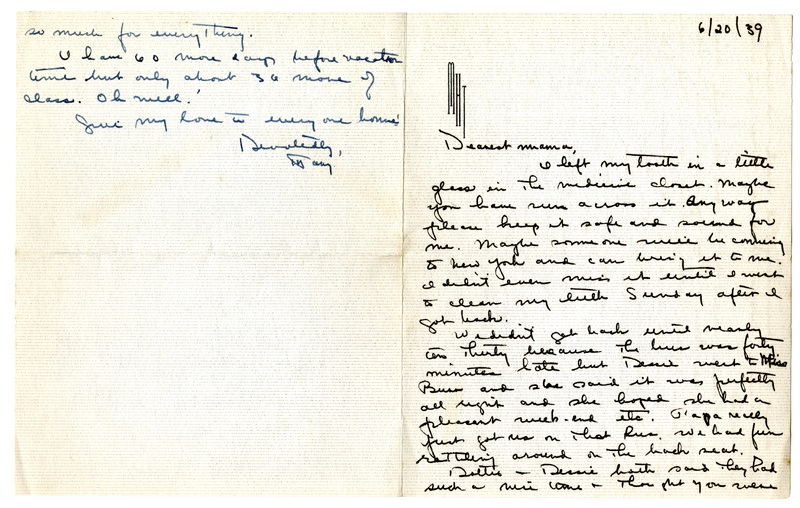 6/20/39
Dearest mama,
I left my tooth in a little
glass in the medicine closet. Maybe
you have run across it. Anyway
please keep it safe and sound for
me. Maybe someone will be coming
to New York and can bring it to me.
I didn't even miss it until I went
to clean my teeth Sunday after I
got back.
We didn't get back until nearly
ten thirty because the bus was forty
minutes late but Dessie went to Miss
and she said it was perfectly
all right and she hoped she had a
pleasant week-end etc. Papa really
just got us on that bus. We had fun
rattling around on the back seat.
Dottie + Dessie both said they had
such a nice time + thought you were
so much for everything.
I have 60 more days before vacation
time but only about 36 more of
class. Oh well!
Give my love to everyone home.
Devotedly,
Mary